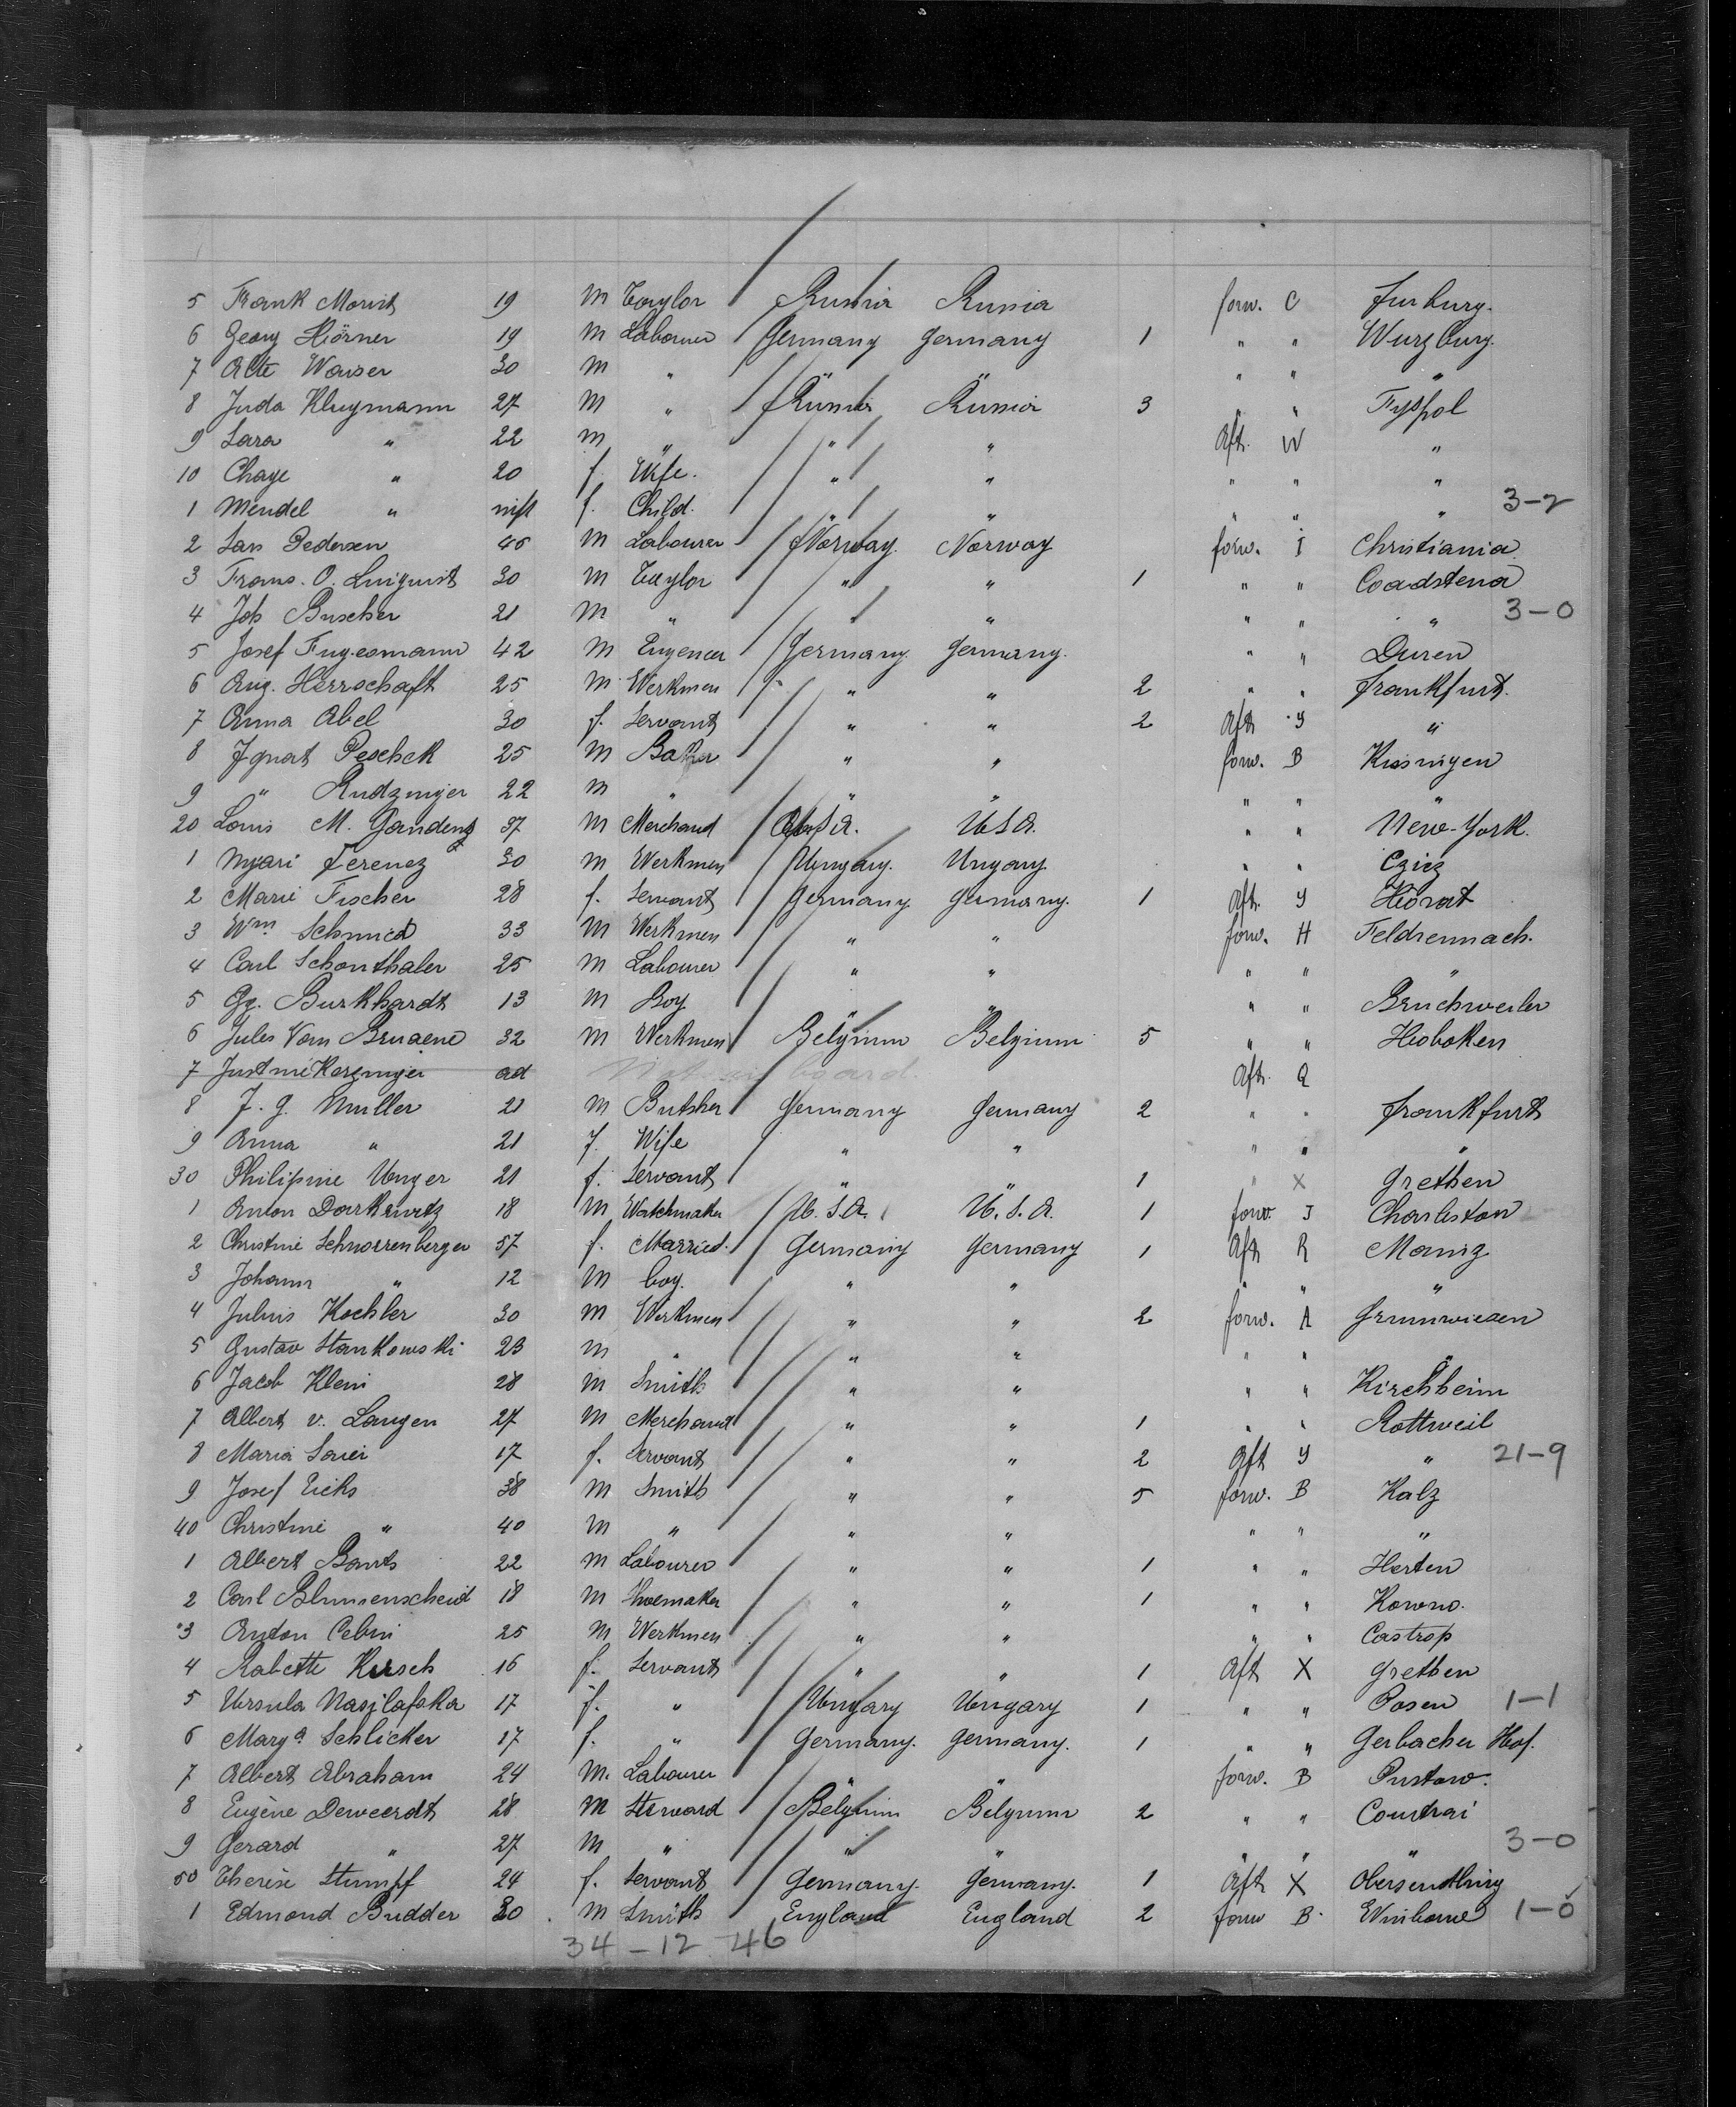 5 Frank Morits 19 M Taylor Russia Russia forw. C Jurburg.
6 Georg Hörner 19 M Labourer Germany Germany 1 " " Wurzburg.
7 Alte Wauser 30 M " " " " " "
8 Juda Klugmann 27 M " Russia Russia 3 " " Tyspol
9 Sara " 22 M " " " Aft. W "
10 Chaye " 20 f. Wife. " " " " "
1 Mendel " inft f. Child. " " " " " 3-2
2 Lars Pedersen 46 M Labourer Norway. Norway forw. I Christiania.
3 Frans. O. Linquist 30 M Taylor " " 1 " " Coadstena
4 Joh Buscher 21 M " " " " " " 3-0
5 Josef Fugesmann 42 M Eugeneer Germany. Germany. " " Duren
6 Aug. Herrschaft 25 M Werkmen " " 2 " " Frankfurt.
7 Anna Abel 30 f. Servant " " 2 Aft Y "
8 Ignat Peschek 25 M Baker " " forw. B Kissingen
9 " Rudzinger 22 M " " " " " "
20 Louis M. Gandenz 37 M Merchand U.S.A. U.S.A. " " New-York.
1 Nyari Ferencz 30 M Werkmen Ungary. Ungary. " " Czicz
2 Marie Fischer 28 f. Servant Germany Germany. 1 Aft. Y Horat
3 Wm Schmied 33 M Werkmen " " forw. H Feldrennach.
4 Carl Schonthaler 25 M Labourer " " " " "
5 Gg. Burkhardt 13 M Boy " " " " Bruchweiler
6 Jules Van Bruaene 32 M Werkmen Belgium Belgium 5 " " Hoboken
7 Justine Kerzinger ad Not on board. Aft. Q
8 J. G. Muller 21 M Butsher Germany Germany 2 " " Frankfurt
9 Anna " 21 f. Wife " " " " "
30 Philipine Unger 21 f. Servant " " 1 " X Grethen
1 Anton Darkewitz 18 M Watchmaker U.S.A. U.S.A. 1 forw. I Charleston
2 Christine Schnorrenberger 57 f. Married. Germany Germany 1 Aft R Mainz
3 Johann " 12 M boy. " " " " "
4 Julius Kochler 30 M Werkmen " " 2 forw. A Grunwiesen
5 Gustav Stankowski 23 M " " " " " "
6 Jacob Klein 28 M Smith " " " " Kirchheim
7 Albert v. Langen 27 M Merchand " " 1 " " Rottweil
8 Maria Sauer 17 f. Servant " " 2 Aft Y " 21-9
9 Josef Eicks 38 M Smith " " 5 forw. B Kalz
40 Christine " 40 M " " " " " "
1 Albert Bants 22 M Labourer " " 1 " " Herten
2 Carl Blumenscheid 18 M Shoemaker " " 1 " " Kowno.
3 Anton Cebin 25 M Werkmen " " " " Castrop
4 Babette Kirsch 16 f. Servant " " 1 Aft X Grethen
5 Ursula Nasilafska 17 f. " Ungary Ungary 1 " " Posen 1-1
6 Marga Schlicker 17 f. " Germany. Germany. 1 " " Gerbacher Hof.
7 Albert Abraham 24 M. Labourer " " forw. B Pustow.
8 Eugène Deweerdt 28 M Steward Belgium Belgium 2 " " Courtrai
9 Gerard " 27 M " " " " " " 3-0
50 Therese Stumpf 24 f. Servant Germany. Germany. 1 Aft X Obersendling
1 Edmond Budder 30 M Smith England England 2 forw B. Wimborne 1-0
34-12 46